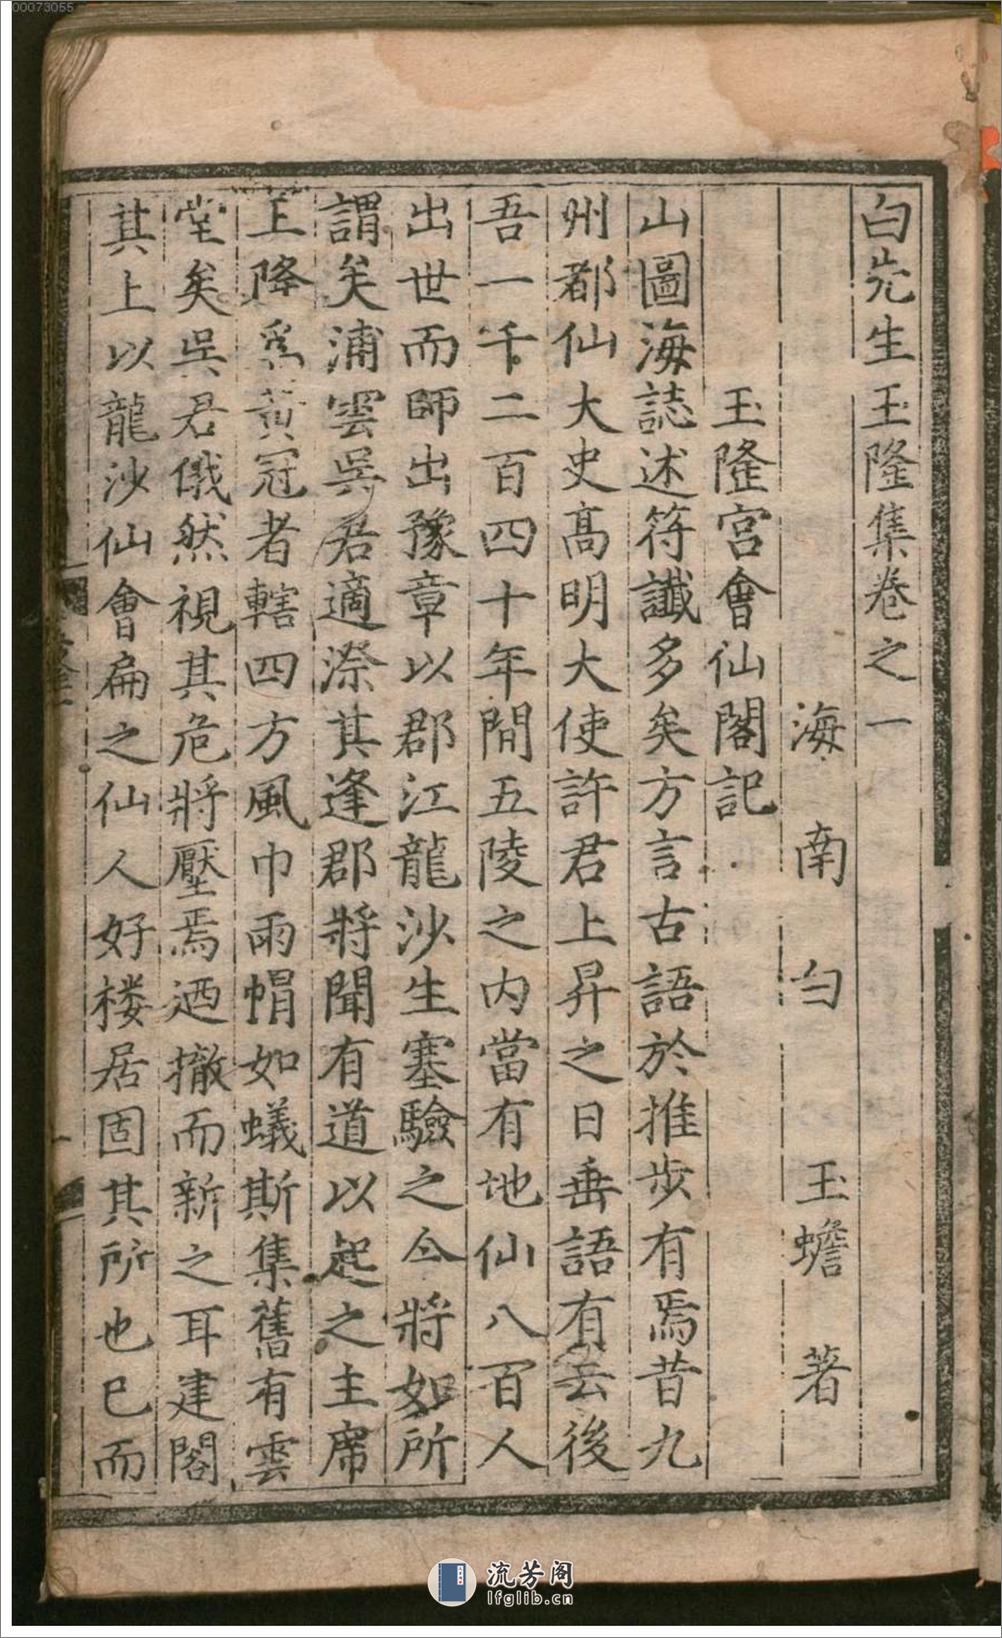 00073055
白先生玉隆集卷之一
海南白玉蟾著
玉隆宮會仙閣記
山圖海誌述符讖多矣方言古語於推步有焉昔九
州都仙大史高明大使許君上昇之日垂語有云後
吾一千二百四十年間五陵之内當有地仙八百人
出世而師出豫章以郡江龍沙生塞驗之今將如所
謂矣浦雲吳君適漈其逢郡將聞有道以起之主席
王降爲黃冠者轄四方風巾雨帽如蟻斯集舊有雲
堂矣吳君俄然視其危將壓焉迺撤而新之耳建閣
其上以龍沙仙會扁之仙人好楼居固其所也已而
流芳阁
lfglib.cn